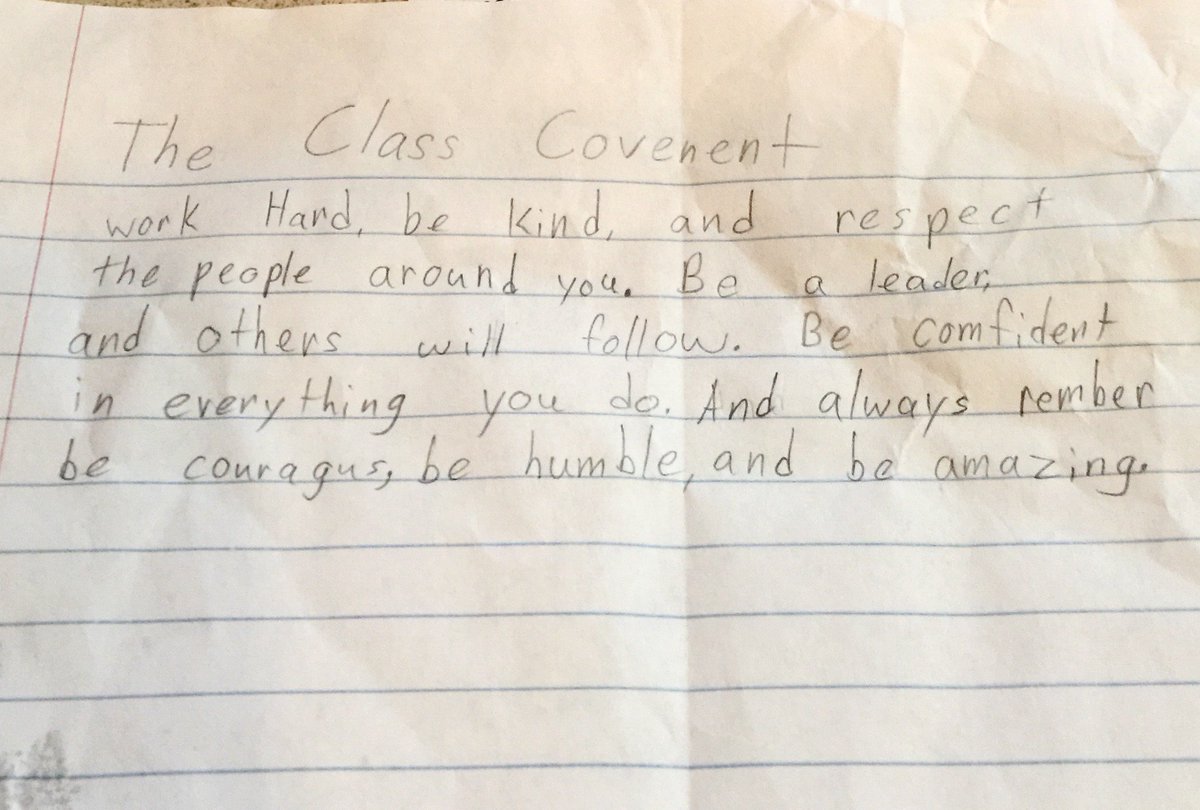 The Class Covenent
work Hard, be kind, and respect
the people around you. Be a leader,
and others will follow. Be comfident
in everything you do. And always rember
be couragus, be humble, and be amazing.